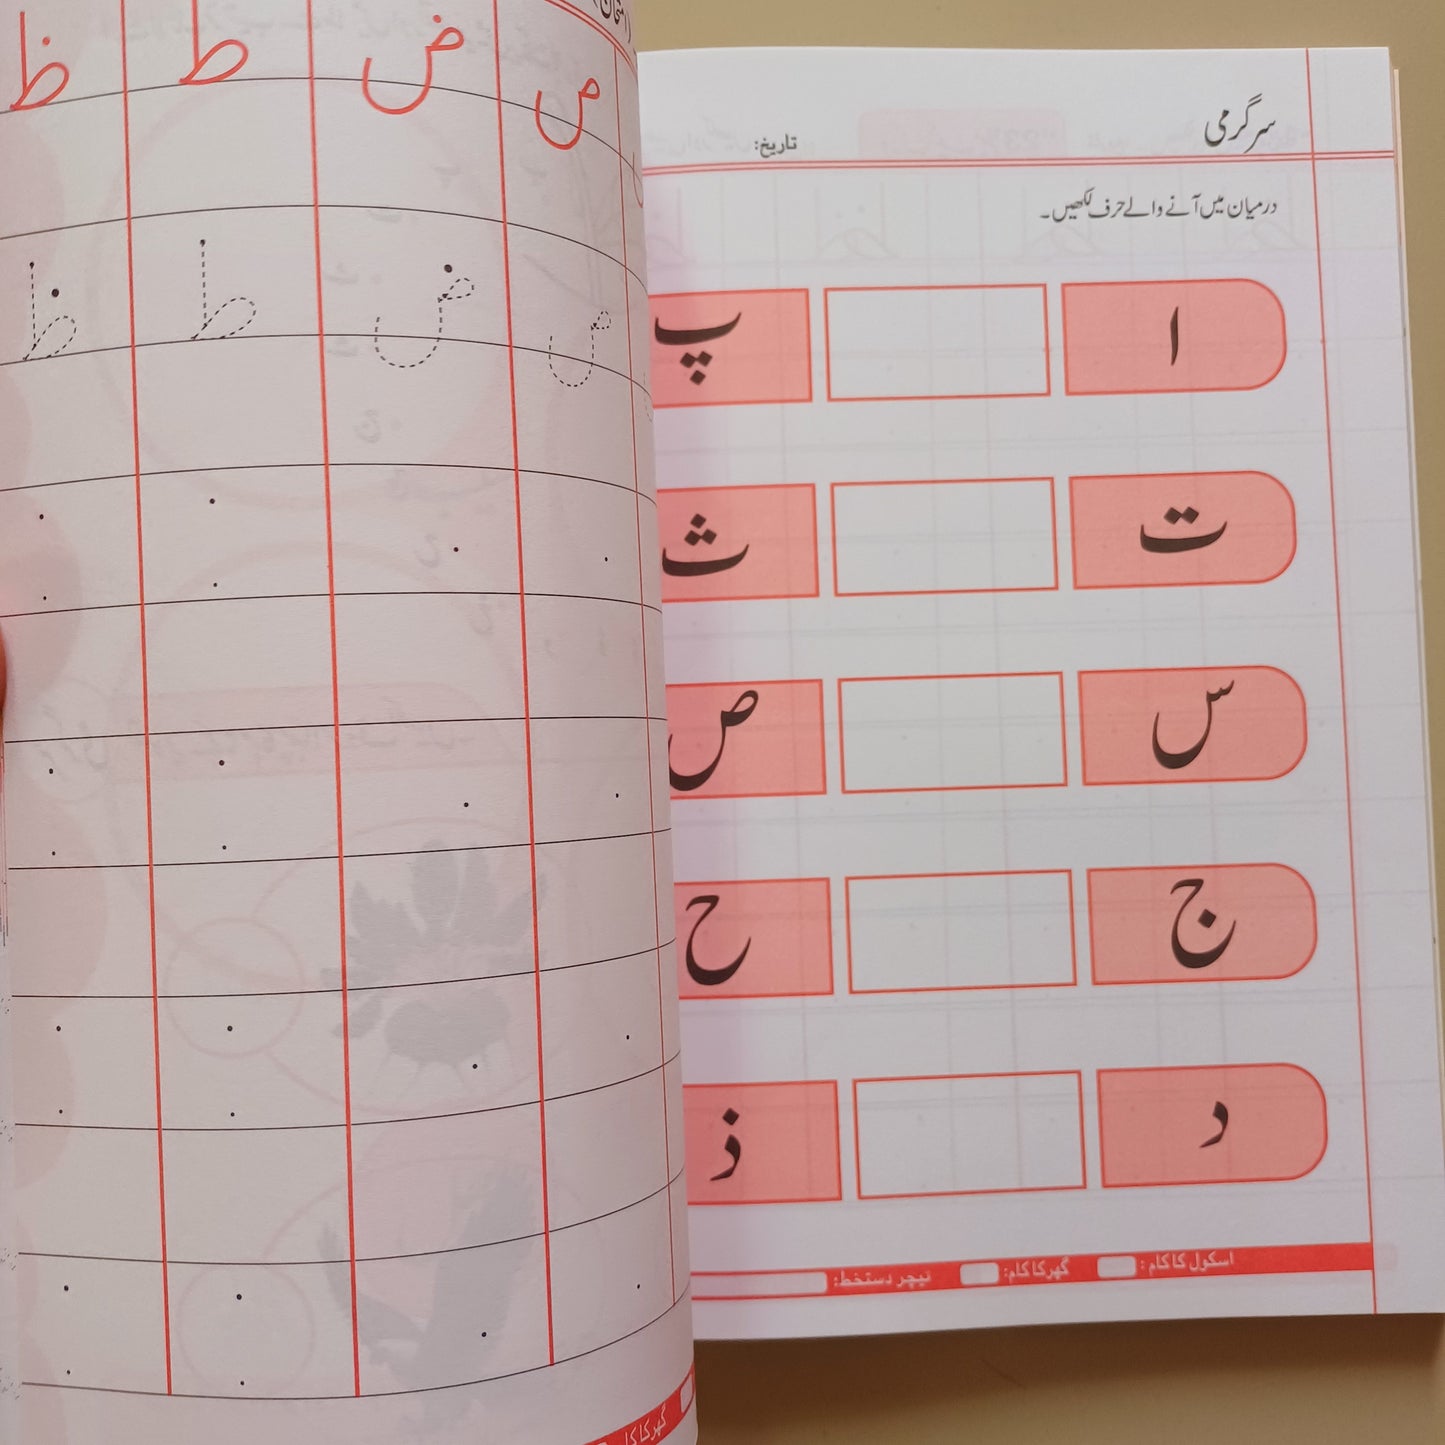 سرگرمی
تاریخ:
درمیان میں آنے والے حرف لکھیں۔
ا پ
ت ث
س ص
ج ح
د ذ
اسکول کا کام: گھر کا کام: ٹیچر دستخط:
ص ض ط ظ
ص ض ط ظ
گھر کا کا